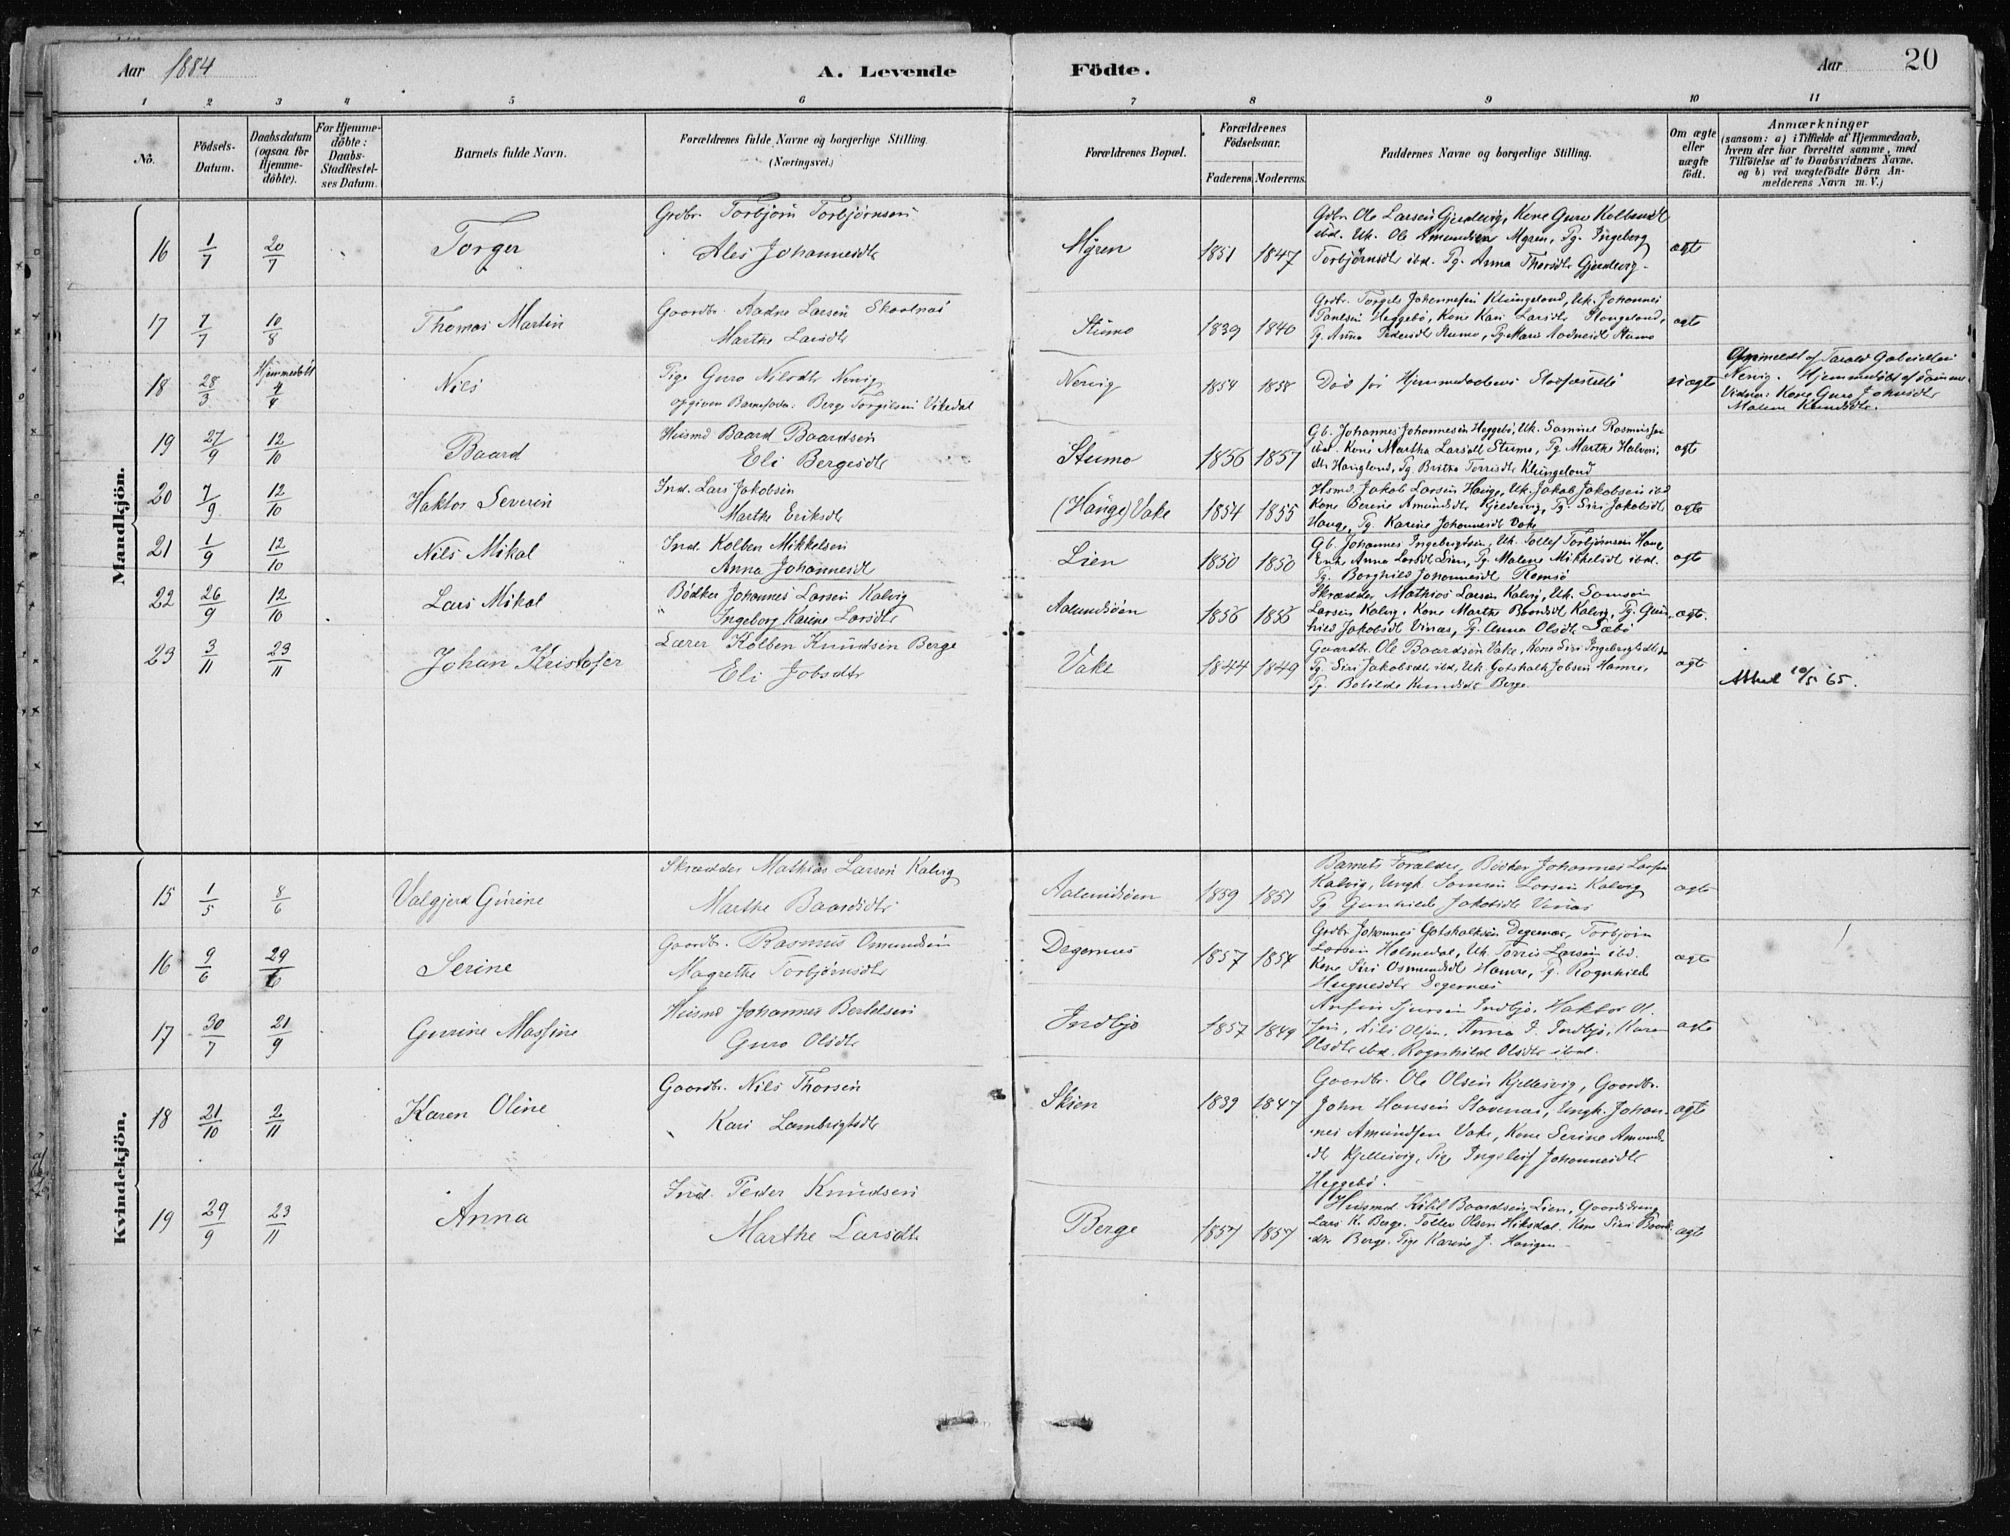 Aar 1884
A. Levende Födte.
Aar
20
1 2 3 4 5 6 7 8 9 10 11
No.
Födsels-Datum.
Daabsdatum (ogsaa for Hjemme-döbte).
For Hjemme-döbte: Daabs-Stadfæstel-ses Datum.
Barnets fulde Navn.
Forældrenes fulde Navne og borgerlige Stilling. (Næringsvei.)
Forældrenes Bopæl.
Forældrenes Födselsaar.
Faderens. Moderens.
Faddernes Navne og borgerlige Stilling.
Om ægte eller uægte födt.
Anmærkninger
(sansom: a) i Tilfælde af Hjemmedaab,
hvem der har forrettet samme, med
Tilföielse af to Daabsvidners Navne.
og b) ved uægtefödte Börn An-
melderens Navn m. V.)
Mandkjön.
16 1/7 20/7 Torger
Grdbr. Torbjørn Torbjørnsen
Ales Johannesdtr
Myren 1851 1847
Gdbr Ole Larsen Gjerdevig, Kone Guro Kolbensdt
ibd. Uk. Ole Amundsen Myren, Pg. Ingeborg
Torbjørnsdtr ibd. Pg. Anna Thorsdtr Gjerdevig.
ægte
17 7/7 10/8 Thomas Martin
Gaardbr. Aadne Larsen Skaalnæs
Marthe Larsdtr
Stumo 1839 1840
Grdbr. Torgels Johannesen Klungeland, Uk. Johannes
Paulsen Heggebø, Kone Kari Larsdtr Stangeland,
Pg. Anna Pedersdt Stumo, Pg. Mari Aadnesdt Stumo
ægte
18 28/3 Hjemmedøbt 4/4 Nils
Pige Guro Nilsdtr Nervig
opgiven Barnefader: Berge Torgilsen Vikedal
Nervig 1854 1858
Død før Hjemmedaabens Stadfæstelse
uægte
Anmeldt af Tarald Gabrielsen
Nervig. Hjemmedøbt af samme.
Vidner: Kone Guro Johnsdtr
Malene Knudsdtr.
19 27/9 12/10 Baard
Husmd Baard Baardsen
Eli Bergesdtr
Stumo 1856 1857
Gb. Johannes Johannesen Heggebø, Uk. Samuel Rasmussen
ibd. Kone Martha Larsdt Stumo, Pg Marthe Halvors-
dtr Haugland, Pg. Britha Torrisdtr Klungeland
ægt
20 7/9 12/10 Haktor Severin
Ind. Lars Jakobsen
Marthe Eriksdtr
(Hauge) Vake 1854 1855
Hsmd. Jakob Larsen Hauge, Uk. Jakob Jakobsen ibd
Kone Serine Amundsdt Gjerdevig, Pg. Siri Jakobsdt
Hauge, Pg. Karine Johannesdt Vake
ægte
21 1/9 12/10 Nils Mikal
Ind. Kolben Mikkelsen
Anna Johannesdt
Lien 1850 1850
Gb. Johannes Ingebrigtsen, Uk. Tollef Torbjørnsen Hauge
Enke Anna Larsdt Lien, Pg. Malene Mikkelsdt ibd.
Pg. Borghild Johannesdt Ramsø
ægt
22 26/9 12/10 Lars Mikal
Bødker Johannes Larsen Kalvig
" Ingeborg Karine Larsdtr
Aalundsøen 1856 1856
Skrædder Mathias Larsen Kalvig, Uk. Samson
Larsen Kalvig, Kone Marthe Baardsdt Kalvig, Pg. Gun-
hild Jakobsdt Vinæs, Pg. Anna Olsdtr Sæbø
ægt.
23 3/11 23/11 Johan Kristofer
Lærer Kolben Knudsen Berge
Eli Jobsdtr
Vake 1844 1849
Gaardbr. Ole Baardsen Vake, Kone Siri Ingebrigtsdtr
Pg. Siri Jakobsdtr ibd, Uk. Gotskalk Jobsen Hamre,
Pg. Botilde Knudsdt Berge.
ægt
Attest 10/5 65.
Kvindekjön.
15 1/5 8/6 Valgjerd Gurine
Skrædder Mathias Larsen Kalvig
Marthe Baardsdtr
Aalundsøen 1859 1851
Barnets Forældre, Bødker Johannes Larsen
Kalvig, Ungk. Samson Larsen Kalvig
Pg. Gunhild Jakobsdt Vinæs
ægte
16 9/6 29/6 Serine
Gaardbr. Rasmus Omundsen
Magrethe Torbjørnsdtr
Degernæs 1857 1854
Grdbr Johannes Gotskalksen Degernæs, Torbjørn
Larsen Holmedal, Uk. Torris Larsen ibd.
Kone Siri Osmundsdt Hamre, Pg. Rognhilde
Degernæs
ægte
17 30/7 21/9 Gurine Massine
Husmd Johannes Bertelsen
Guro Olsdtr
Indbjo 1857 1849
Indbjo, Haktor O.
Nils Olsen, Anna I. Indbjo, Karen
Olsdtr ibd. Rognhild Olsdtr ibd.
ægte
18 21/10 2/11 Karen Oline
Gaardbr. Nils Thorsen
Kari Lambrigtsdtr
Skien 1839 1847
Gaardbr. Ole Olsen Kjellesvig, Gaardbr.
John Hansen Stavenæs, Ungk. Johan-
nes Amundsen Vake, Kone Serine Amunds-
dtr Kjellesvig, Pige Ingeleif Johannesdtr
Heggebø.
ægte
19 29/9 23/11 Anna
Ind. Peder Knudsen
Marthe Larsdtr
Berge 1857 1857
Husmd Ketil Baardsen Lien, Gaardsdreng
Lars K. Berge. Tollev Olsen Hiksdal. Kone Siri Baards-
dtr Berge. Pige Karine J. Haugen
ægte